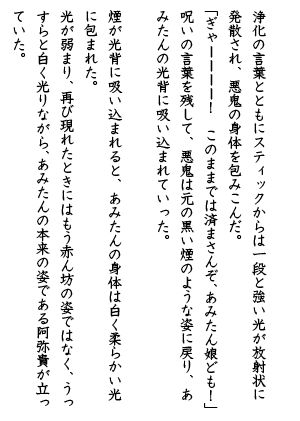 浄化の言葉とともにスティックからは一段と強い光が放射状に
発散され、悪鬼の身体を包みこんだ。
「ぎゃーーーー!　このままでは済まさんぞ、あみたん娘ども!」
呪いの言葉を残して、悪鬼は元の黒い煙のような姿に戻り、あ
みたんの光背に吸い込まれていった。
煙が光背に吸い込まれると、あみたんの身体は白く柔らかい光
に包まれた。
光が弱まり、再び現れたときにはもう赤ん坊の姿ではなく、うっ
すらと白く光りながら、あみたんの本来の姿である阿弥貴が立っ
ていた。